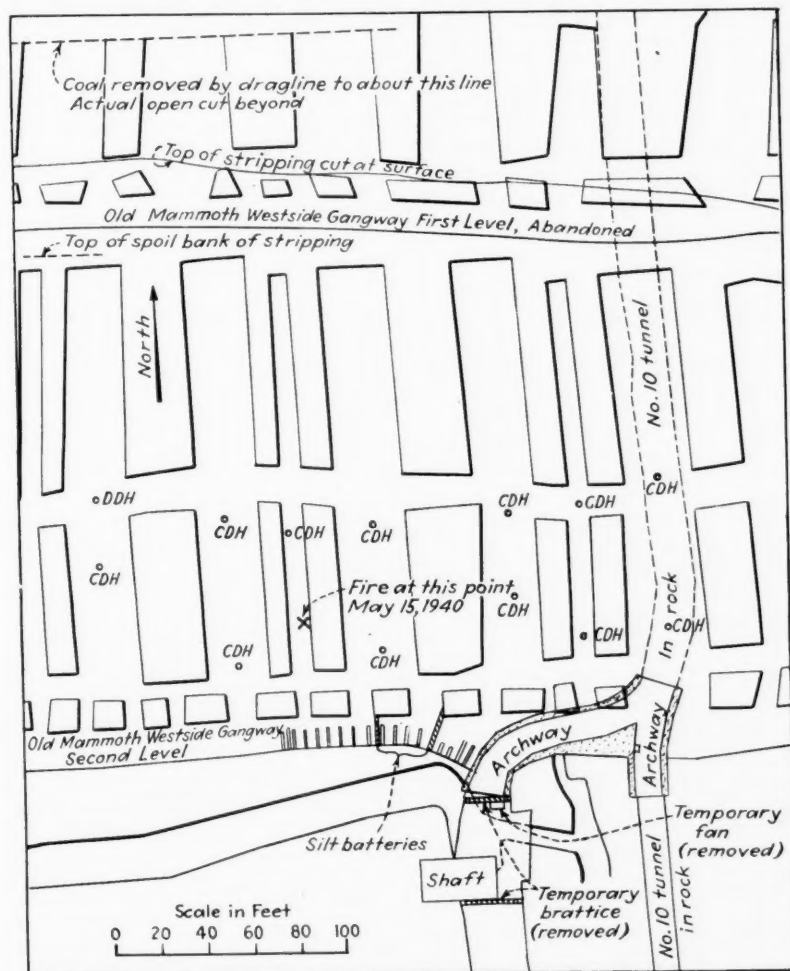 Coal removed by dragline to about this line
Actual open cut beyond
Top of stripping cut at surface
Old Mammoth Westside Gangway First Level, Abandoned
Top of spoil bank of stripping
North
No. 10 tunnel
DDH
CDH
CDH
CDH
CDH
CDH
CDH
CDH
Fire at this point
May 15, 1940
CDH
In rock
CDH
CDH
CDH
CDH
Old Mammoth Westside Gangway
Second Level
Archway
Archway
Silt batteries
Temporary
fan
(removed)
Shaft
Temporary
brattice
(removed)
No. 10 tunnel
in rock
Scale in Feet
0 20 40 60 80 100